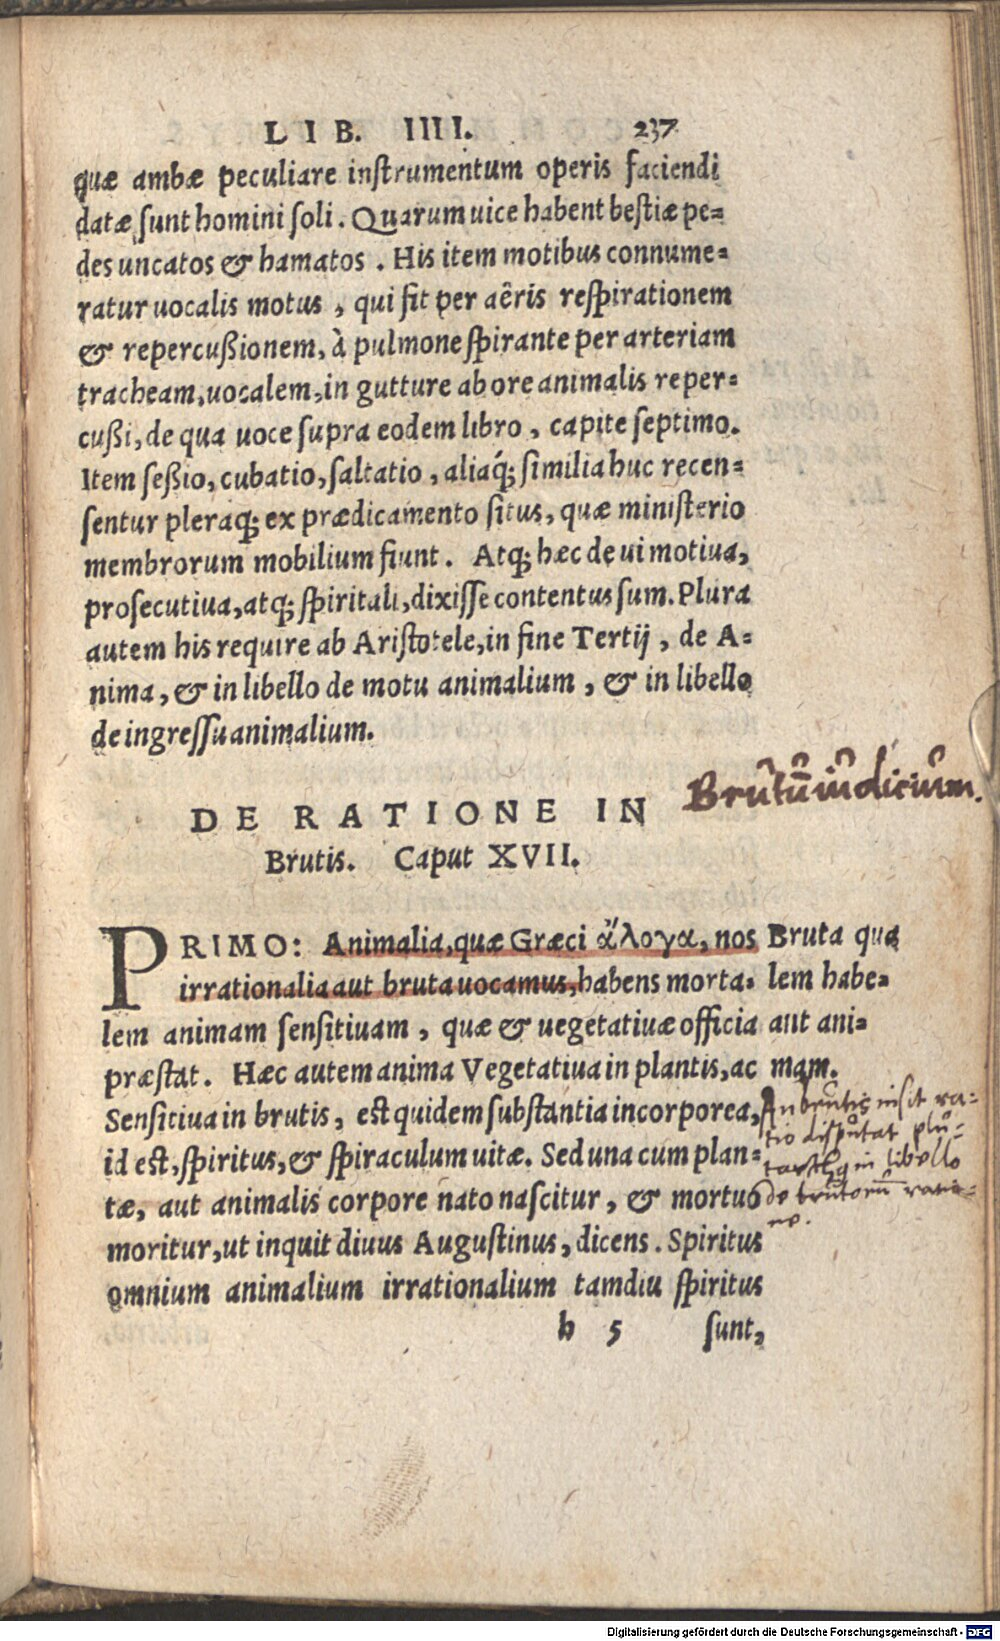 LIB. IIII. 237
quæ ambæ peculiare inſtrumentum operis faciendi
datæ ſunt homini ſoli. Quarum uice habent beſtiæ pe=
des uncatos & hamatos. His item motibus connume=
ratur uocalis motus, qui fit per aëris reſpirationem
& repercußionem, à pulmone ſpirante per arteriam
tracheam, uocalem, in gutture ab ore animalis reper=
cußi, de qua uoce ſupra eodem libro, capite ſeptimo.
Item ſeßio, cubatio, ſaltatio, aliaq́; ſimilia huc recen=
ſentur pleraq; ex prædicamento ſitus, quæ miniſterio
membrorum mobilium fiunt. Atq; hæc de ui motiua,
proſecutiua, atq; ſpiritali, dixiſſe contentus ſum. Plura
autem his require ab Ariſtotele, in fine Tertij, de A=
nima, & in libello de motu animalium, & in libello
de ingreſſu animalium.
Brutum iudicium.
DE RATIONE IN
Brutis. Caput XVII.
PRIMO: Animalia, quæ Græci ἄλογα, nos
irrationalia aut bruta uocamus, habens morta=
lem animam ſenſitiuam, quæ & uegetatiuæ officia
præſtat. Hæc autem anima Vegetatiua in plantis, ac
Senſitiua in brutis, eſt quidem ſubſtantia incorporea,
id eſt, ſpiritus, & ſpiraculum uitæ. Sed una cum plan=
tæ, aut animalis corpore nato naſcitur, & mortuo
moritur, ut inquit diuus Auguſtinus, dicens. Spiritus
omnium animalium irrationalium tamdiu ſpiritus
h 5 ſunt,
Bruta quą
lem habe=
ant ani=
mam.
An brutis insit ra=
tio disputat plu=
in libello
de brutorū ratio=
ne.
Digitalisierung gefördert durch die Deutsche Forschungsgemeinschaft - DFG